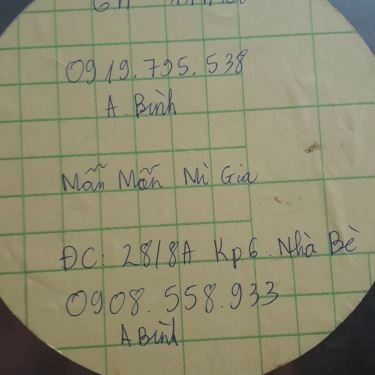 0919.795.538
A. Bình
Mẫn Mẫn Mì Gia
ĐC: 28/8A Kp6. Nhà Bè
0908.558.933
A Bình